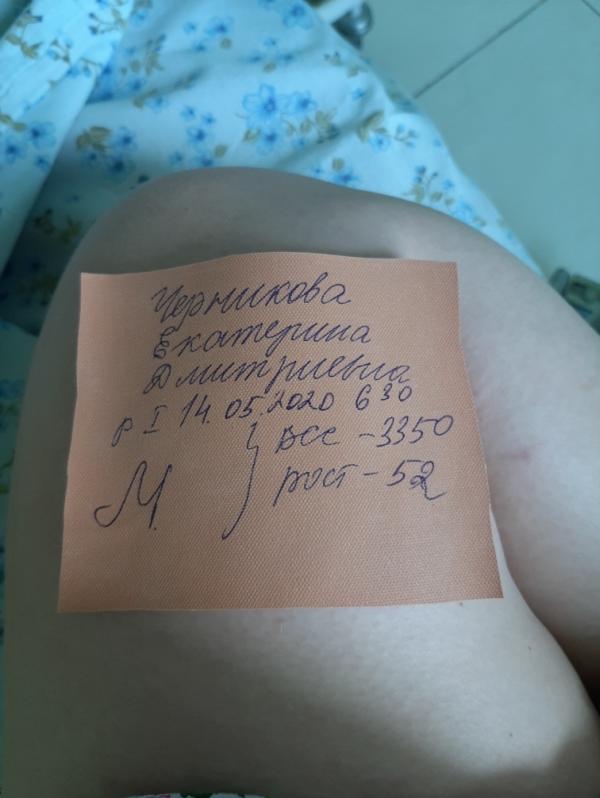 Черникова
Екатерина
Дмитриевна
р I 14.05.2020 6 30
М } вес - 3350
рост - 52